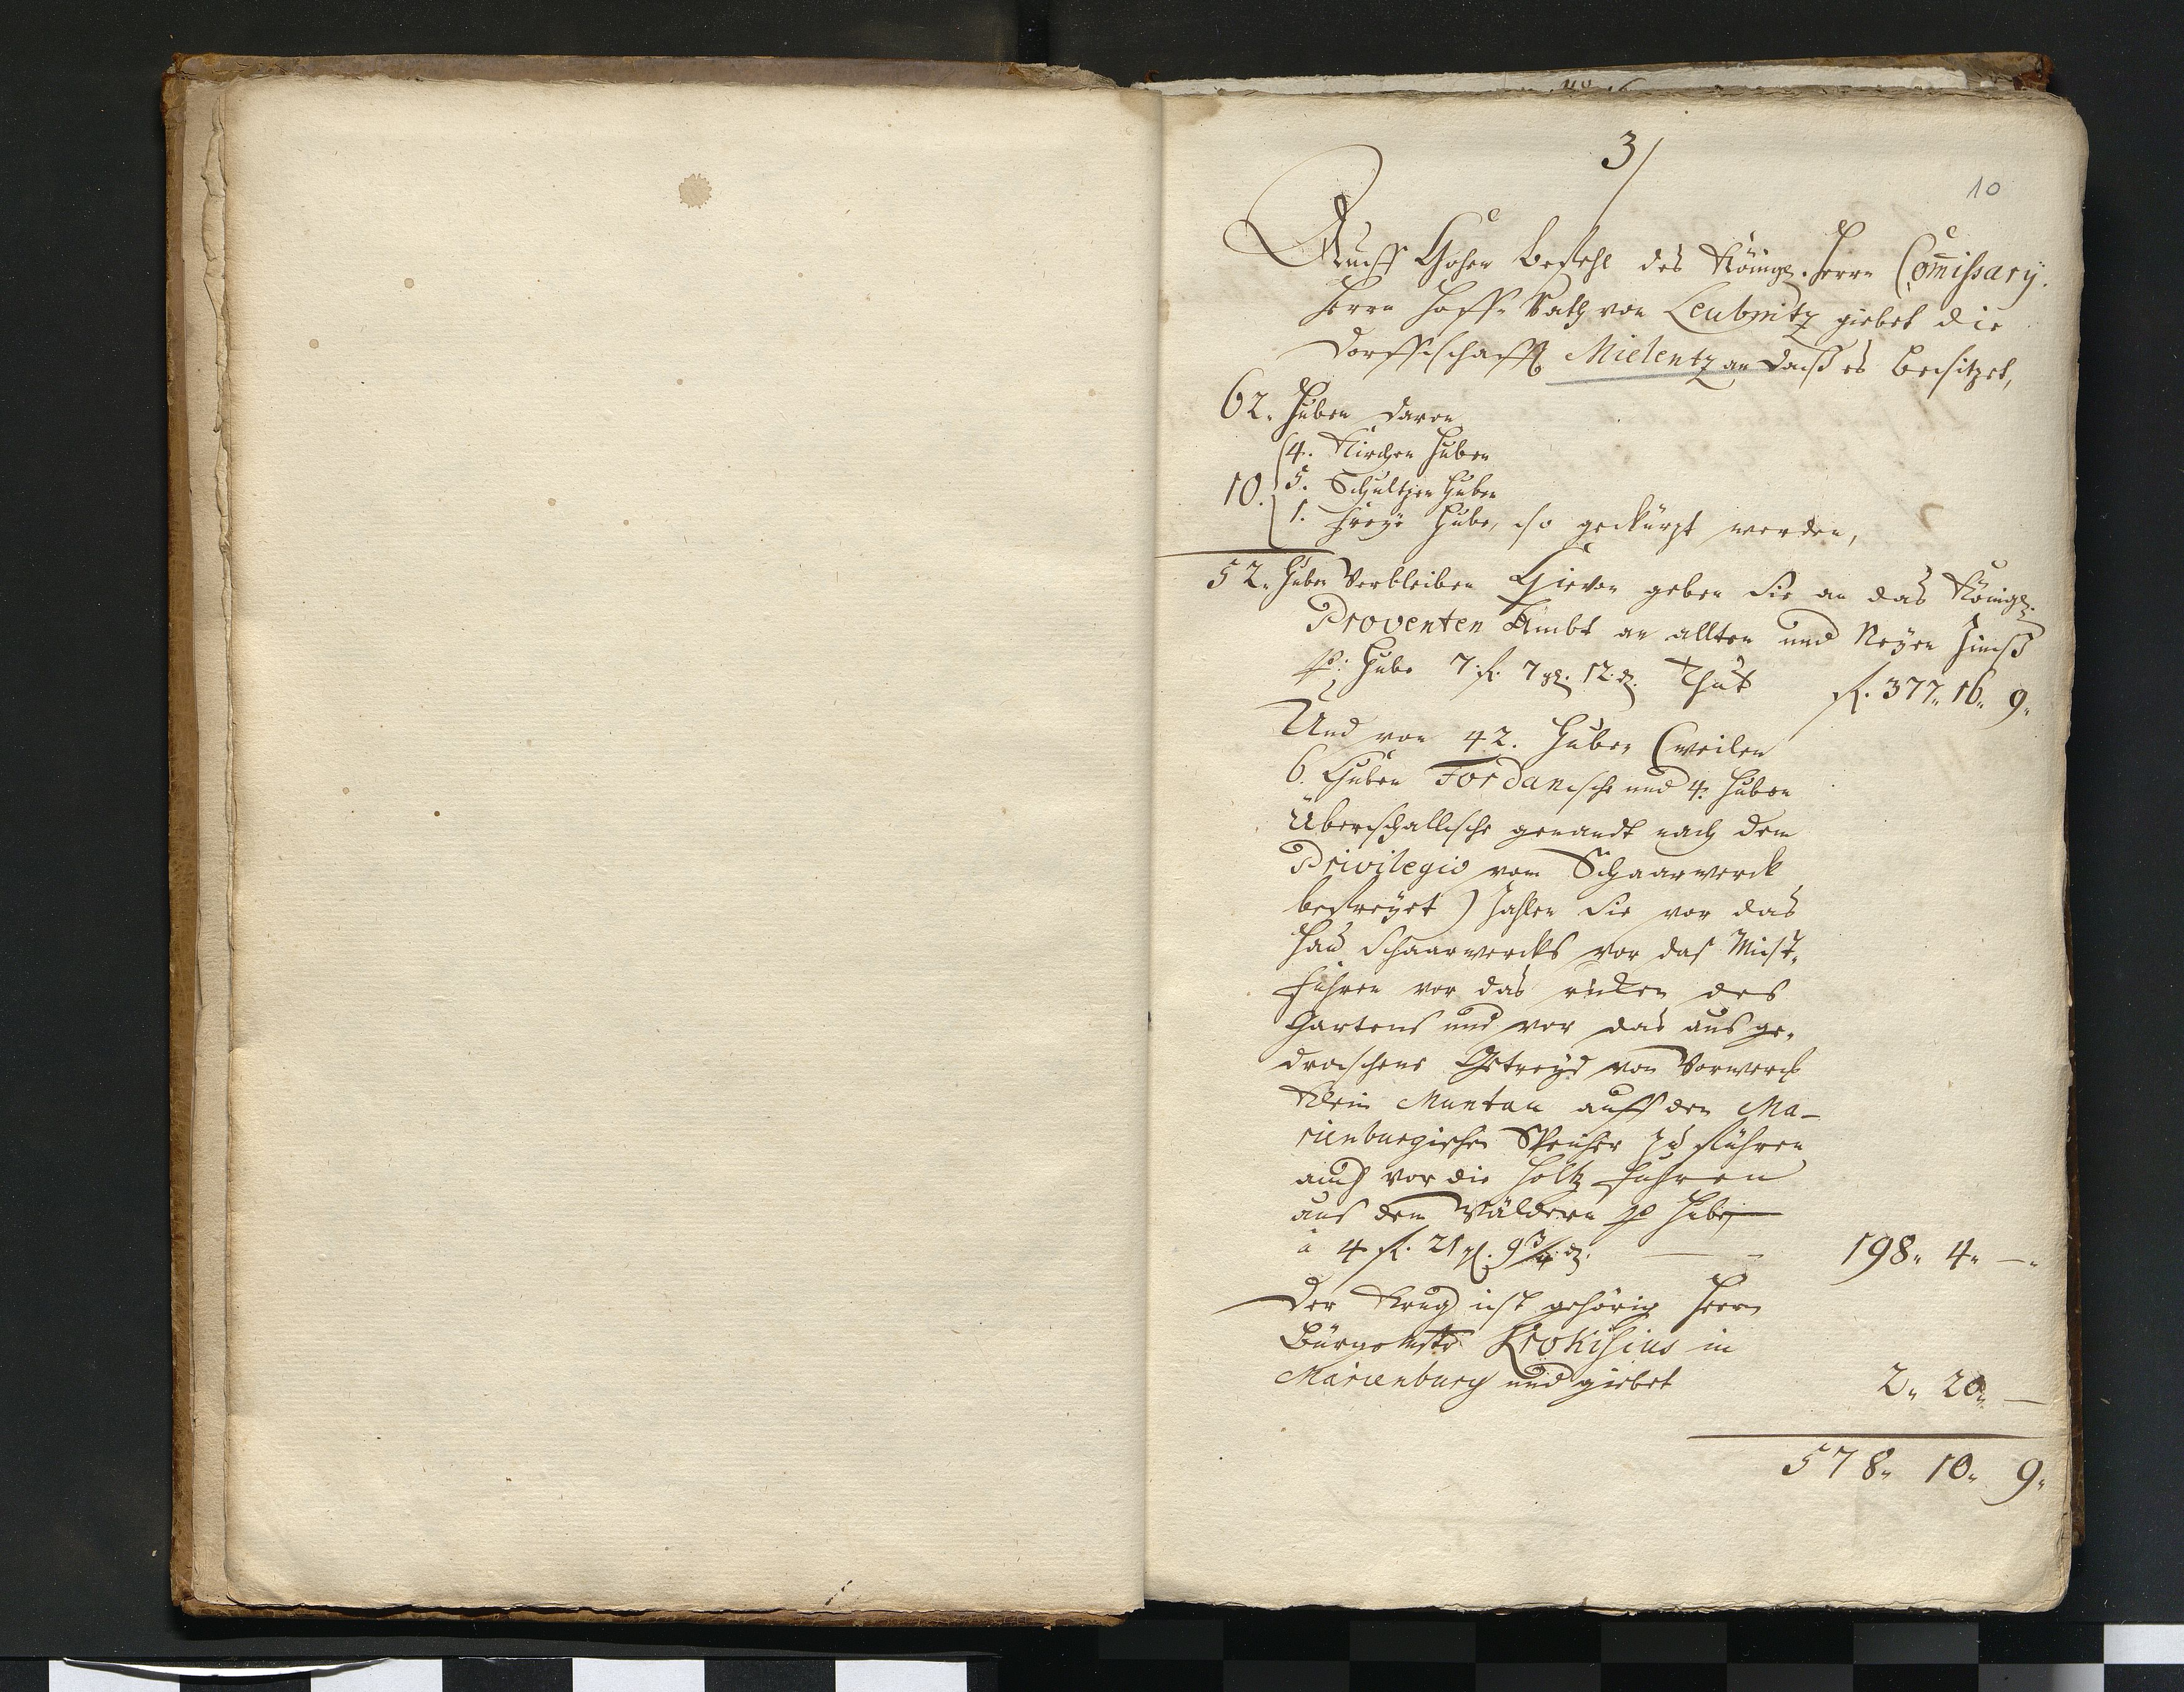 3/
10
Auff Hohen Befehl des Königl. Herrn Com̄issary.
Herrn Hoff-Rath von Leubnitz giebet die
Dorffschafft Mielentz an daß es besitzet,
62. Huben davon
4. Kirchen Huben
10. 5. Schultzen Huben
1. Freye Hube, so gekürzt werden,
52. Huben Verbleiben Hievon geben sie an das Königl.
Proventen Ambt an allten und Neyen Zinß
p: Hube 7. fl. 7 gl. 12. d. Thut fl. 377„ 16„ 9„
Und von 42. Huben (weilen
6. Huben Jordanische und 4. Huben
Überschallische genandt nach dem
Privilegio vom Schaarwerck
befreyet) Zahlen sie vor das
Hau Schaarwercks vor das Mist-
führen vor das des
Gartens und vor das aus ge-
droschene Getreyd von Vorwerck
Klein Muntau auff den Ma-
rienburgischen Speicher zu führen
auch vor die Holtz fuhren
aus den Wäldern p Hube
à 4 fl. 21 gl. 9 3/4 d. — 198„ 4„ —„
Der Krug ist gehörig Herrn
Bürgemstr Krokisius in
Marienburg und giebet 2„ 20„ —
578„ 10„ 9„